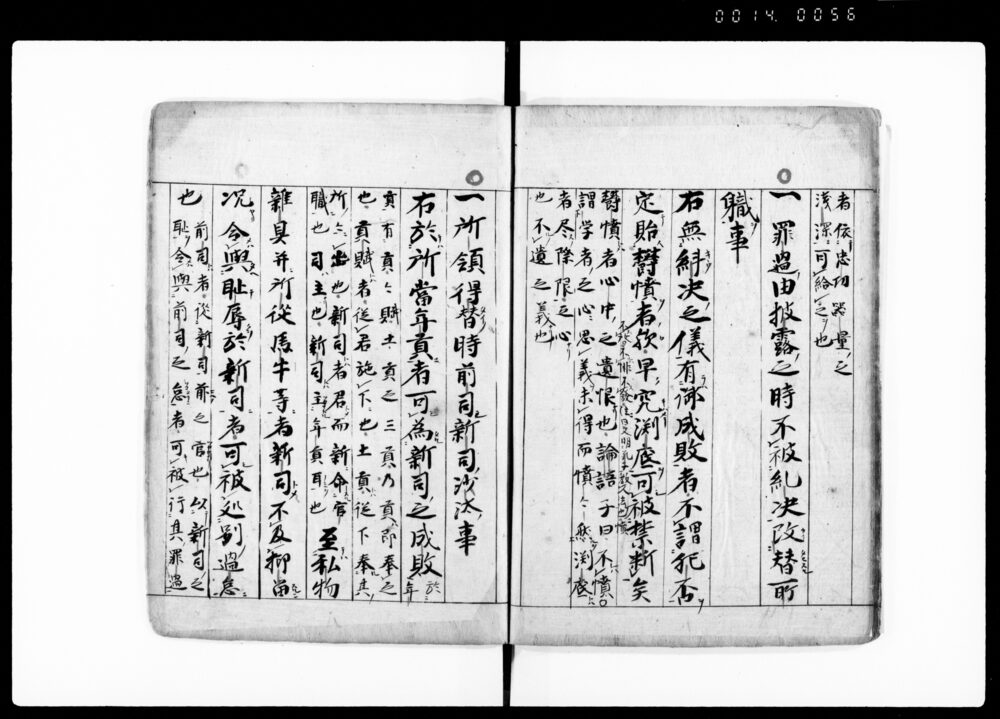 0014. 0056
者依忠功器量之
浅深可給之也
一罪過由披露之時不被糺决改替所
職事
右無糾决之儀有御成敗者不謂犯否
定貽欝憤者欤早究渕底可被禁断矣
欝憤者心中之遺恨也論語子曰不憤
謂学者之心思義未得而憤々然渕底
者尽際限之心
也不遺之義也
一所領得替時前司新司沙汰事
右於所當年貢者可為新司之成敗 於年
貢有貢々賦土貢之三貢乃貢即奉之
也貢賦者従君施下也土貢従下奉其
所々出也新司者君而新命官
職也司主也新司主年貢耳也
至私物
雜具并所従馬牛等者新司不及抑留
况令與耻辱於新司者可被処別過怠
也
前司者従新司前之官也以新司之
耻令與前司之怠者可被行其罪過